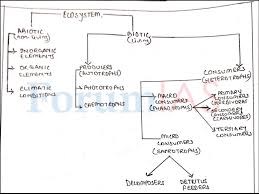 ECOSYSTEM
ABIOTIC
(non living)
BIOTIC
(living)
INORGANIC
ELEMENTS
ORGANIC
ELEMENTS
CLIMATIC
CONDITIONS
PRODUCERS
(AUTOTROPHS)
PHOTOTROPHS
CHEMOTROPHS
CONSUMERS
(HETEROTROPHS)
MACRO
CONSUMERS
(PHAGOTROPHS)
PRIMARY
CONSUMERS
SECONDARY
CONSUMERS
TERTIARY
CONSUMERS
MICRO
CONSUMERS
(SAPROTROPHS)
DECOMPOSERS
DETRITUS
FEEDERS
ForumIAS